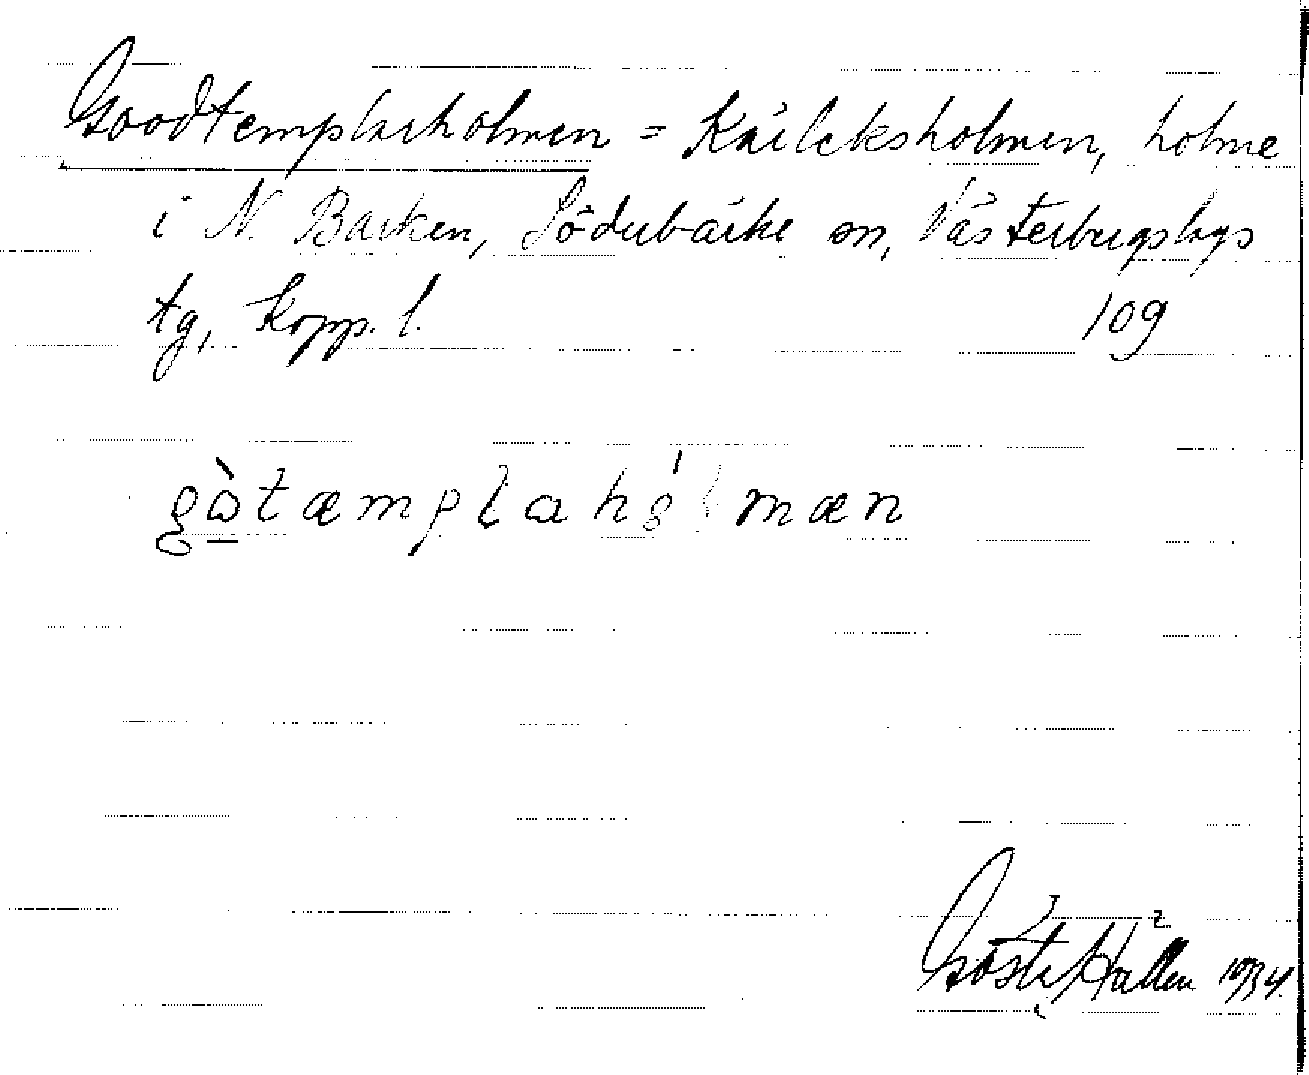 Goodtemplarholmen = Kärleksholmen, holme
i N. Barken, Söderbärke sn, Västerbergslags
tg, Kopp. l. 109
gòtæmplahólmæn
Gösta Hallén 1934.